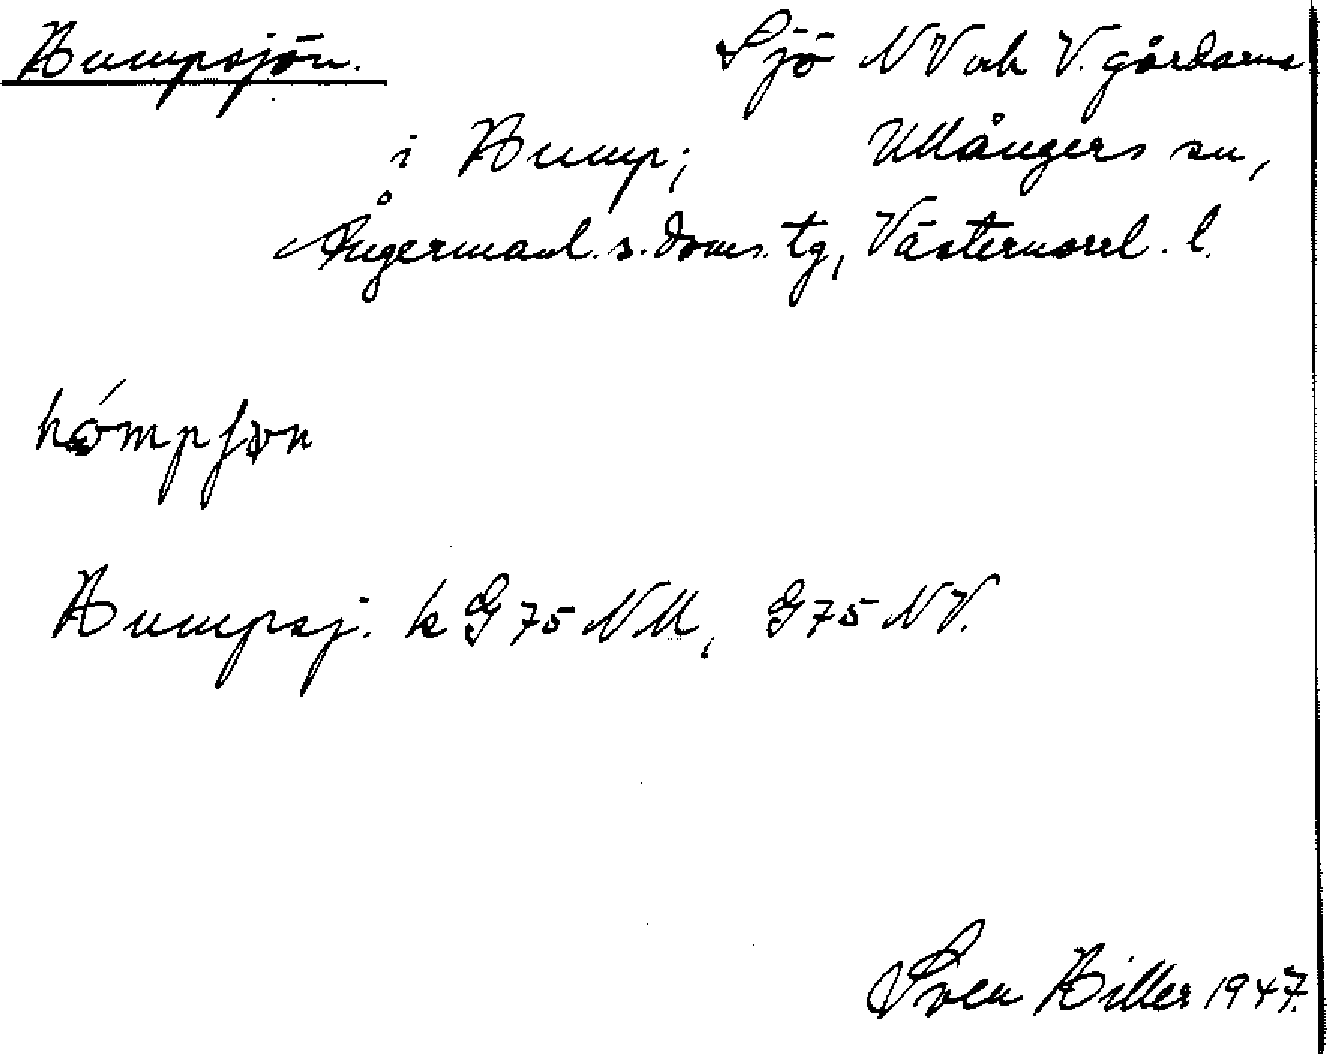 Humpsjön. Sjö NV och V. gårdarna
i Hump; Ullångers sn,
Ångermanl. s. doms. tg, Västernorrl. l.
hómpʃøn
Humpsj. k G 75 NM, G 75 NV.
Sven Hiller 1947.